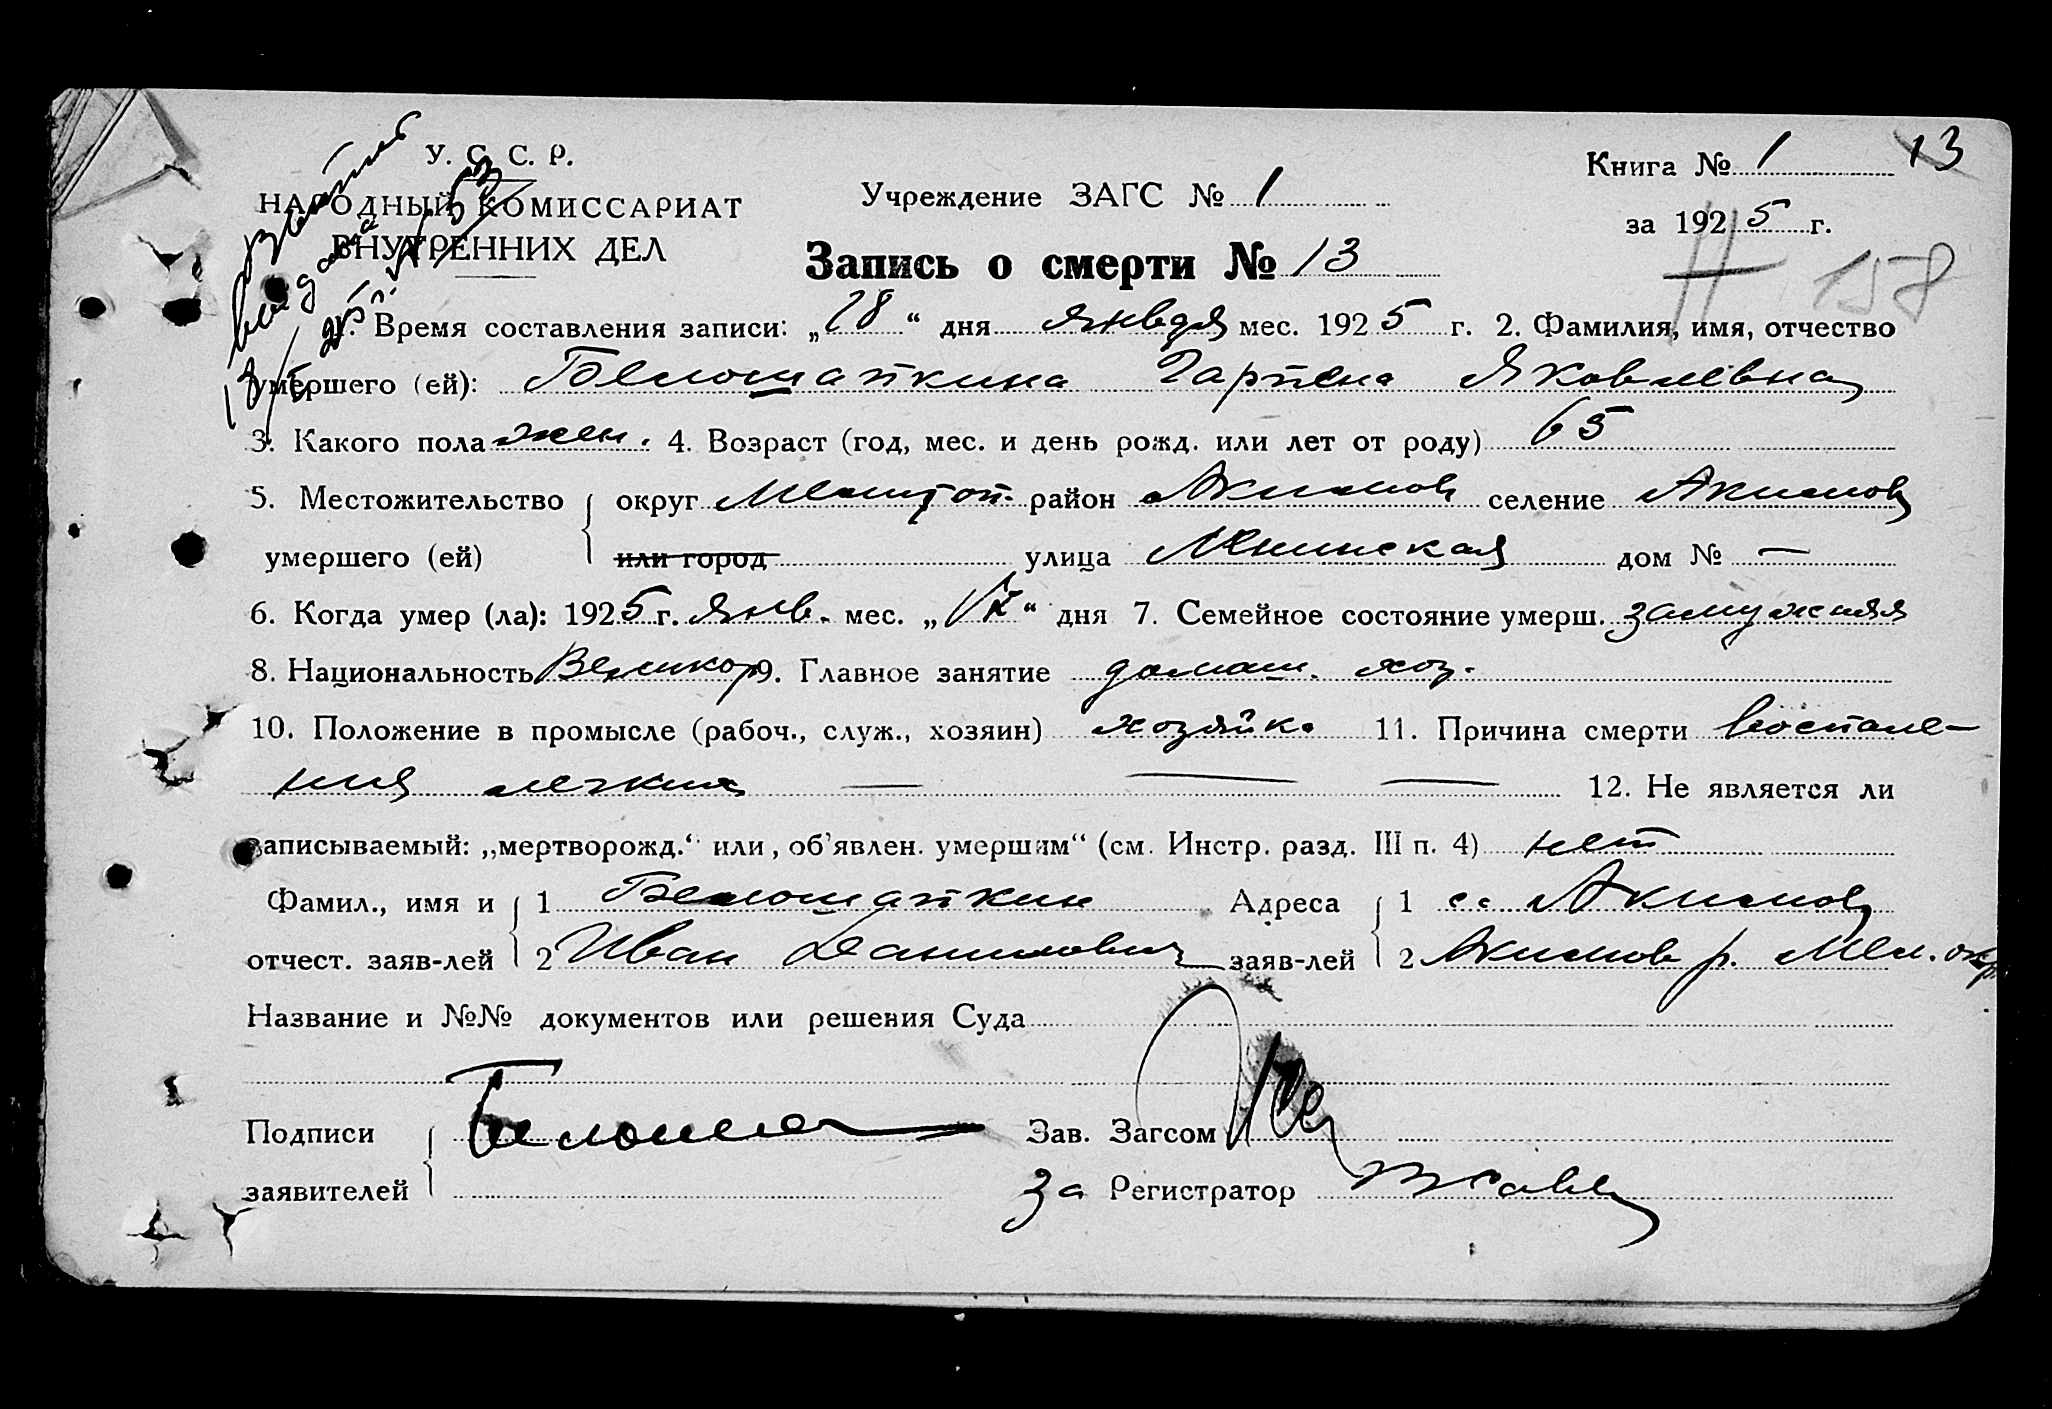 У. С. С. Р.
НАРОДНЫЙ КОМИССАРИАТ
ВНУТРЕННИХ ДЕЛ
Учреждение ЗАГС № 1
Книга № 1 13
за 1925 г.
Запись о смерти № 13
158
1. Время составления записи: „28“ дня января мес. 1925 г. 2. Фамилия, имя, отчество
умершего (ей): Белошапкина Гарпена Яковлевна
3. Какого пола жен. 4. Возраст (год, мес. и день рожд. или лет от роду) 65
5. Местожительство округ Мелитоп. район Акимов селение Акимов
умершего (ей) или город улица Ленинская дом № —
6. Когда умер (ла): 1925 г. янв. мес. „ “ дня 7. Семейное состояние умерш. замужняя
8. Национальность Великор 9. Главное занятие домаш. хоз.
10. Положение в промысле (рабоч., служ., хозяин) хозяйка 11. Причина смерти воспале-
ния легких — — — 12. Не является ли
записываемый: „мертворожд.“ или „об'явлен. умершим“ (см. Инстр. разд. III п. 4) нет
Фамил., имя и 1 Белошапкин Адреса 1 с. Акимов
отчест. заяв-лей 2 Иван Данилович заяв-лей 2 Акимов р. Мел. окр
Название и №№ документов или решения Суда
Подписи Белоша Зав. Загсом
заявителей За Регистратор